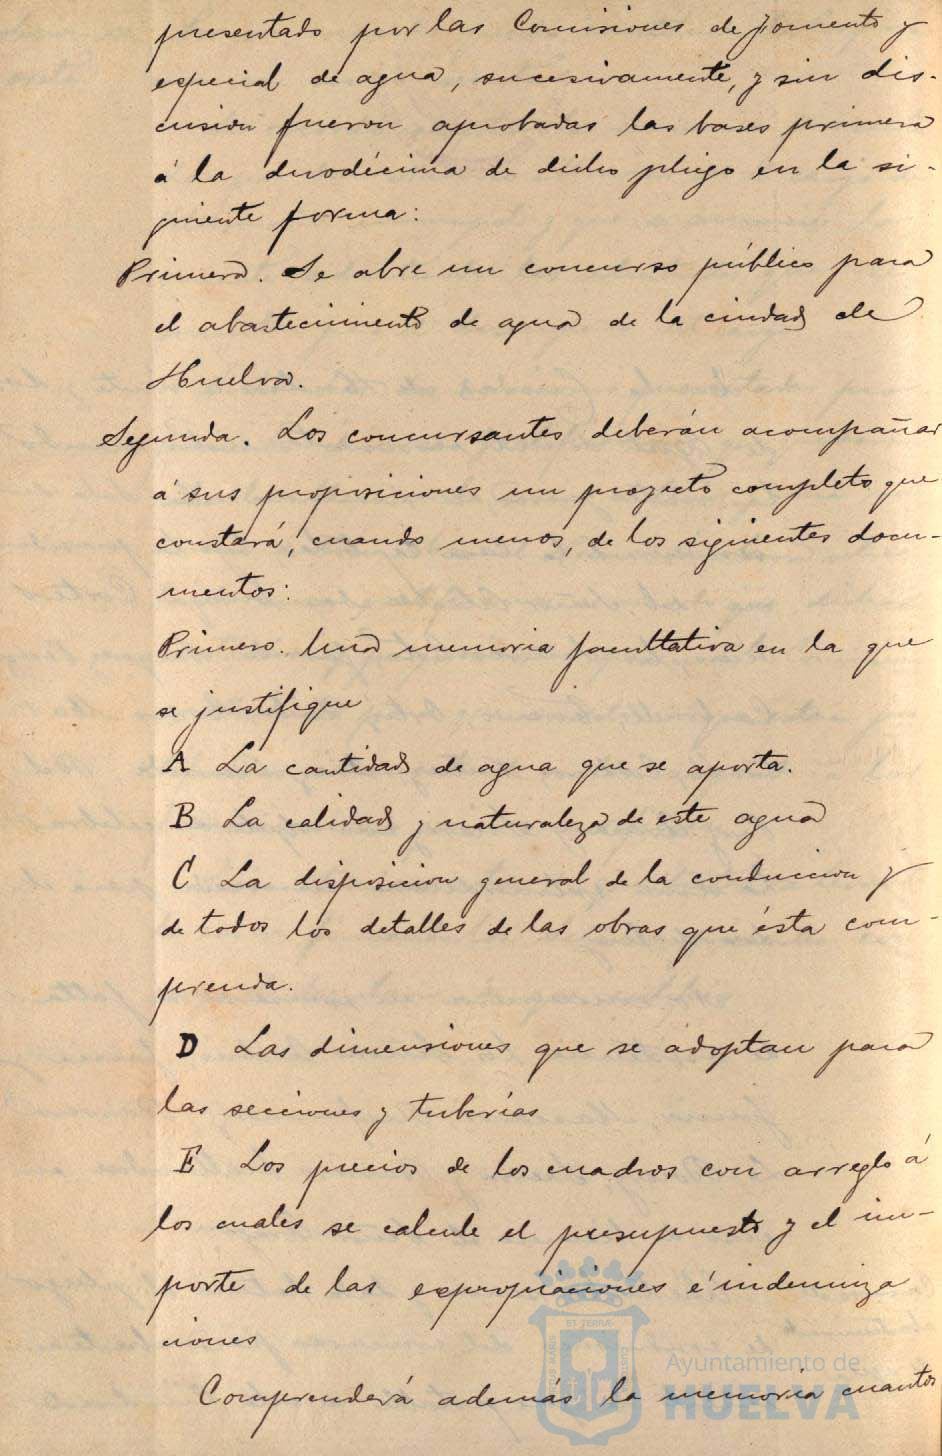 presentado por las Comisiones de fomento y
especial de agua, sucesivamente, y sin dis-
cusion fueron aprobadas las bases primera
á la duodécima de dicho pliego en la si-
guiente forma:
Primera. Se abre un concurso público para
el abastecimiento de agua de la ciudad de
Huelva.
Segunda. Los concursantes deberán acompañar
á sus proposiciones un proyecto completo que
constará, cuando menos, de los siguientes docu-
mentos:
Primero. Una memoria facultativa en la que
se justifique
A La cantidad de agua que se aporta.
B La calidad y naturaleza de este agua
C La disposicion general de la conduccion y
de todos los detalles de las obras que ésta com-
prenda.
D Las dimensiones que se adoptan para
las secciones y tuberías
E Los precios de los cuadros con arreglo á
los cuales se calcule el presupuesto y el im-
porte de las expropiaciones é indemniza
ciones
Comprenderá además la memoria cuantos
Ayuntamiento de
HUELVA